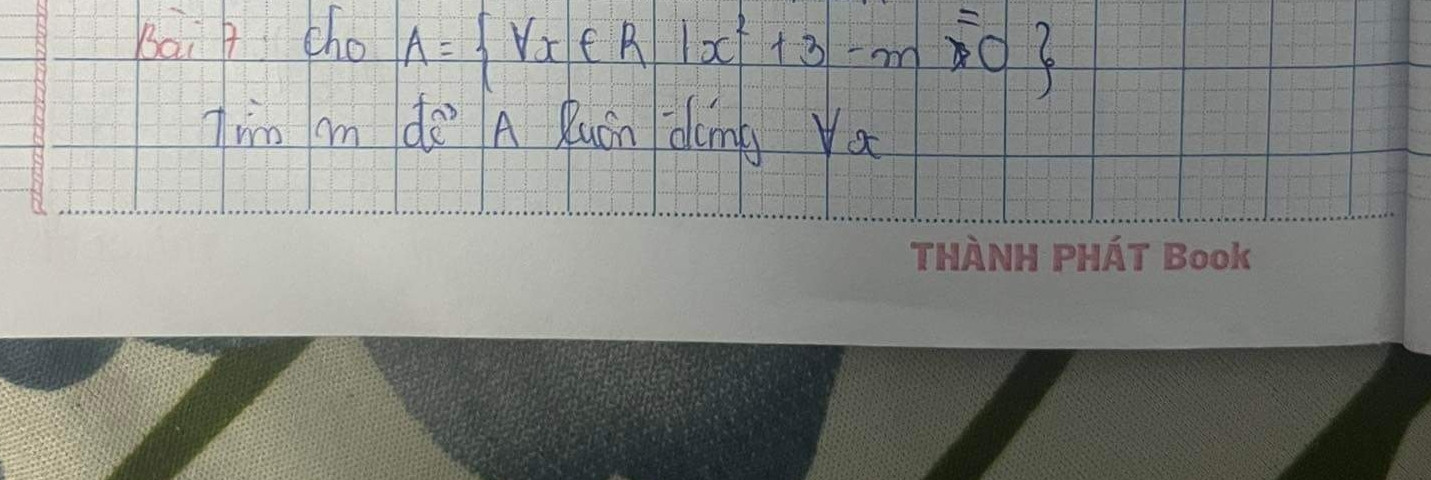 Bài 7: Cho A = { ∀x ∈ R | x² + 3 - m = 0 }
Tìm m để A luôn đúng ∀x
THÀNH PHÁT Book